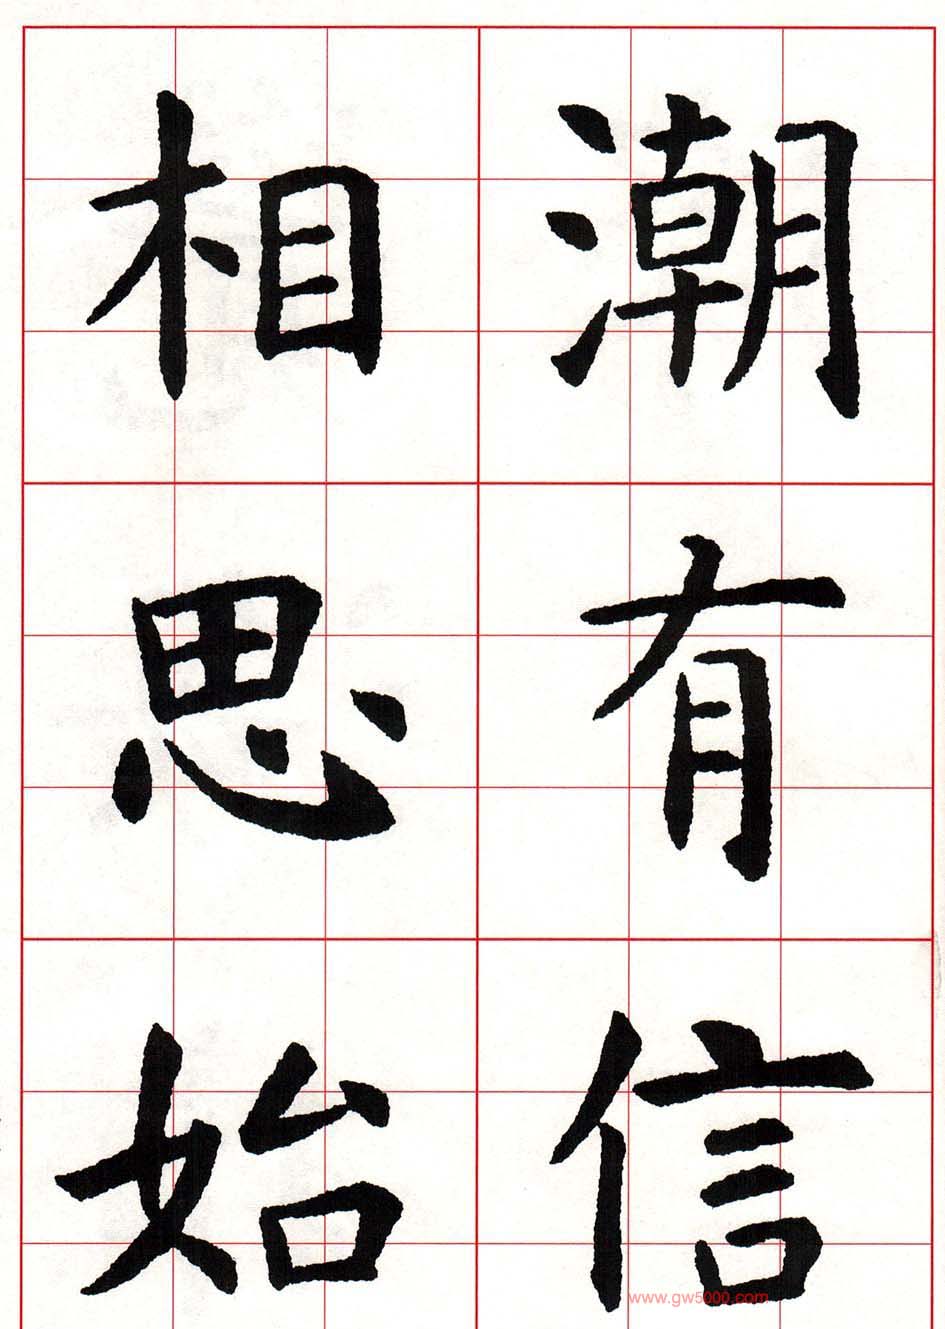 潮有信
相思始
www.gw5000.com